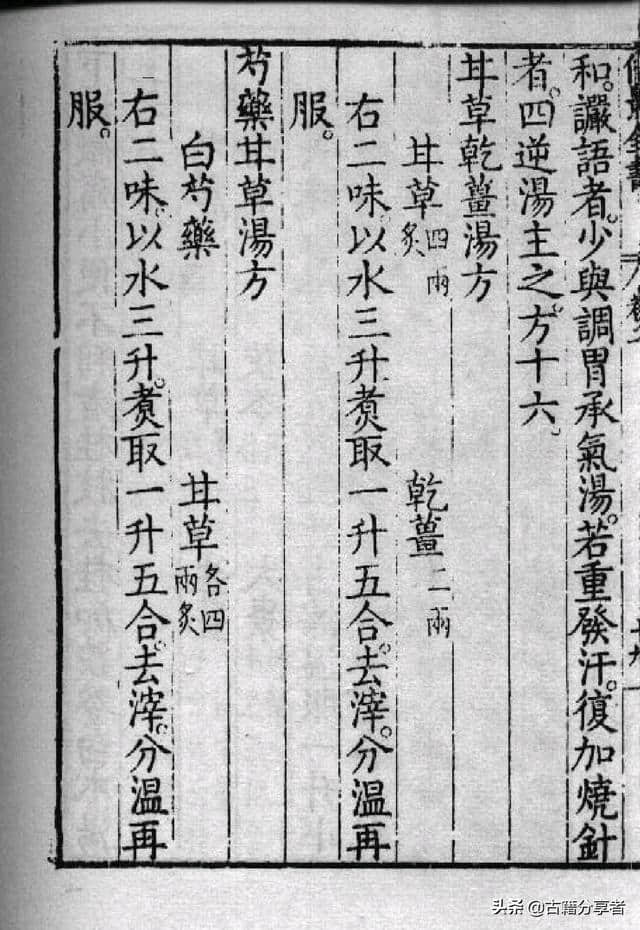 和。讝語者。少與調胃承氣湯。若重發汗。復加燒針
者。四逆湯主之。方十六。
甘草乾薑湯方
甘草四兩炙 乾薑二兩
右二味。以水三升。煑取一升五合。去滓。分溫再
服。
芍藥甘草湯方
白芍藥 甘草各四兩炙
右二味。以水三升。煑取一升五合。去滓。分溫再
服。
头条 @古籍分享者